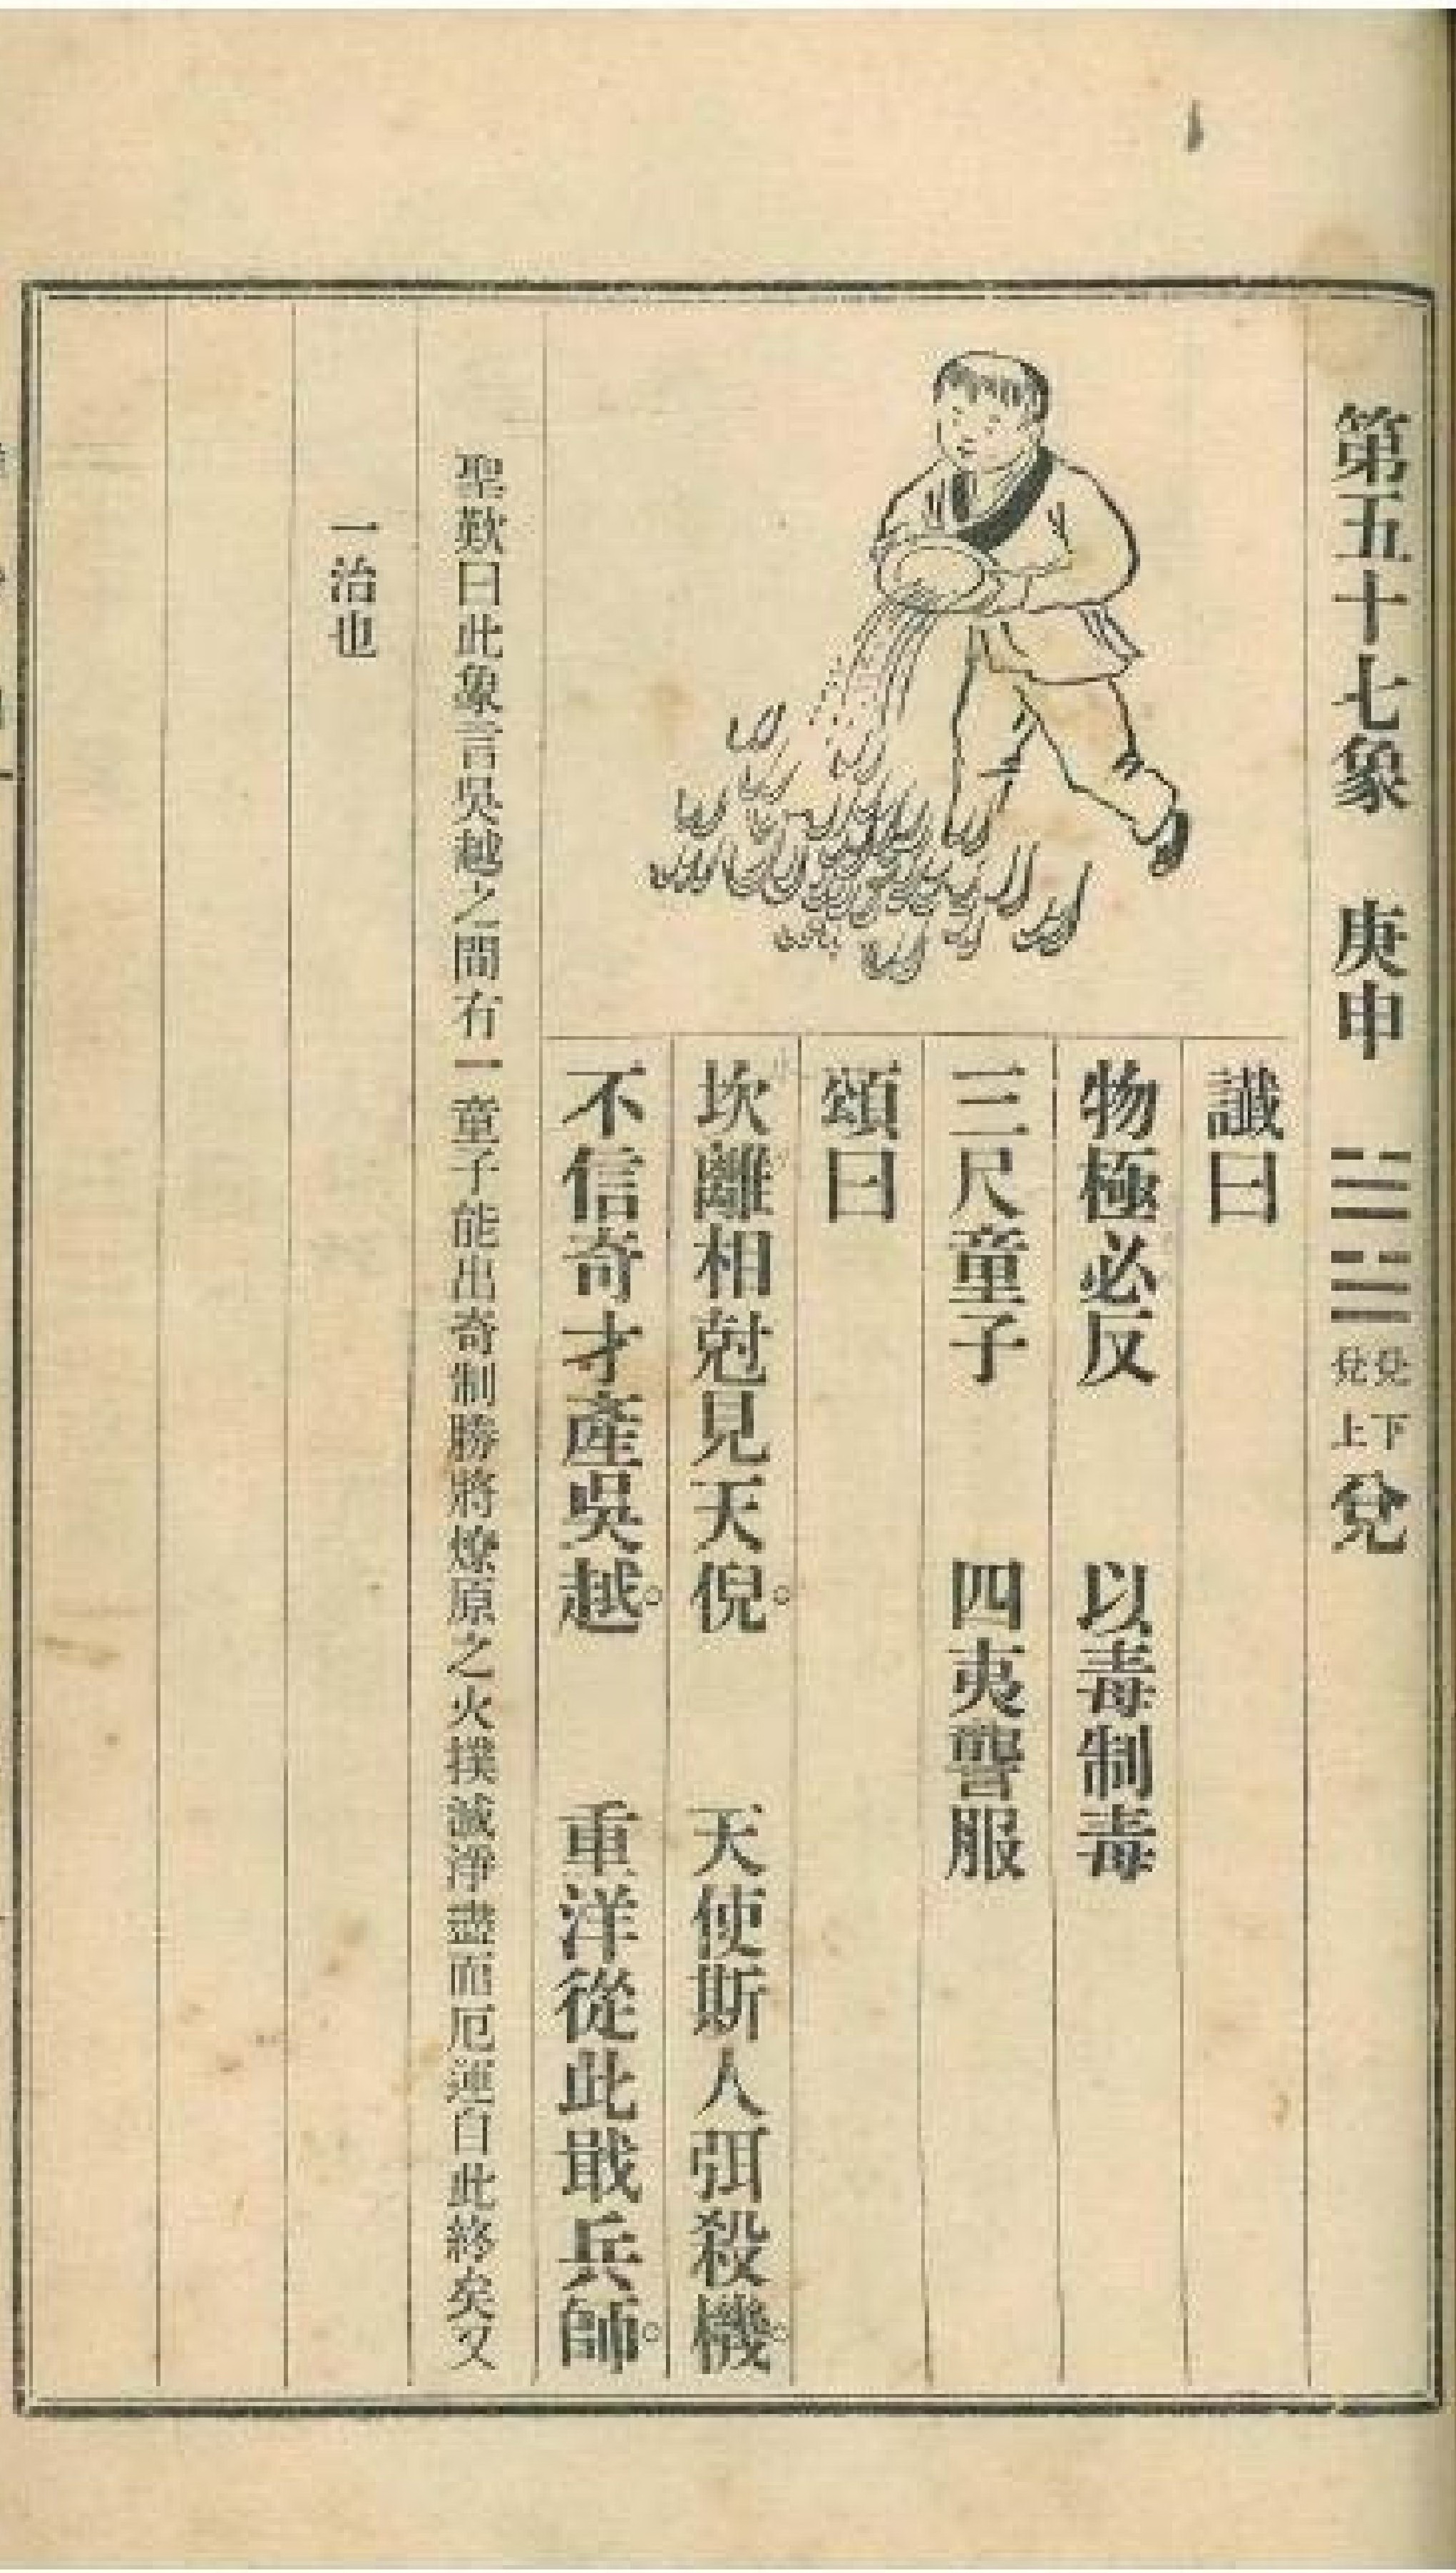 第五十七象 庚申 ䷹ 兌下兌上 兌
讖曰
物極必反 以毒制毒
三尺童子 四夷讋服
頌曰
坎離相尅見天倪。 天使斯人弭殺機。
不信奇才產吳越。 重洋從此戢兵師。
聖歎曰此象言吳越之間有一童子能出奇制勝將燎原之火撲滅淨盡而厄運自此終矣又
一治也